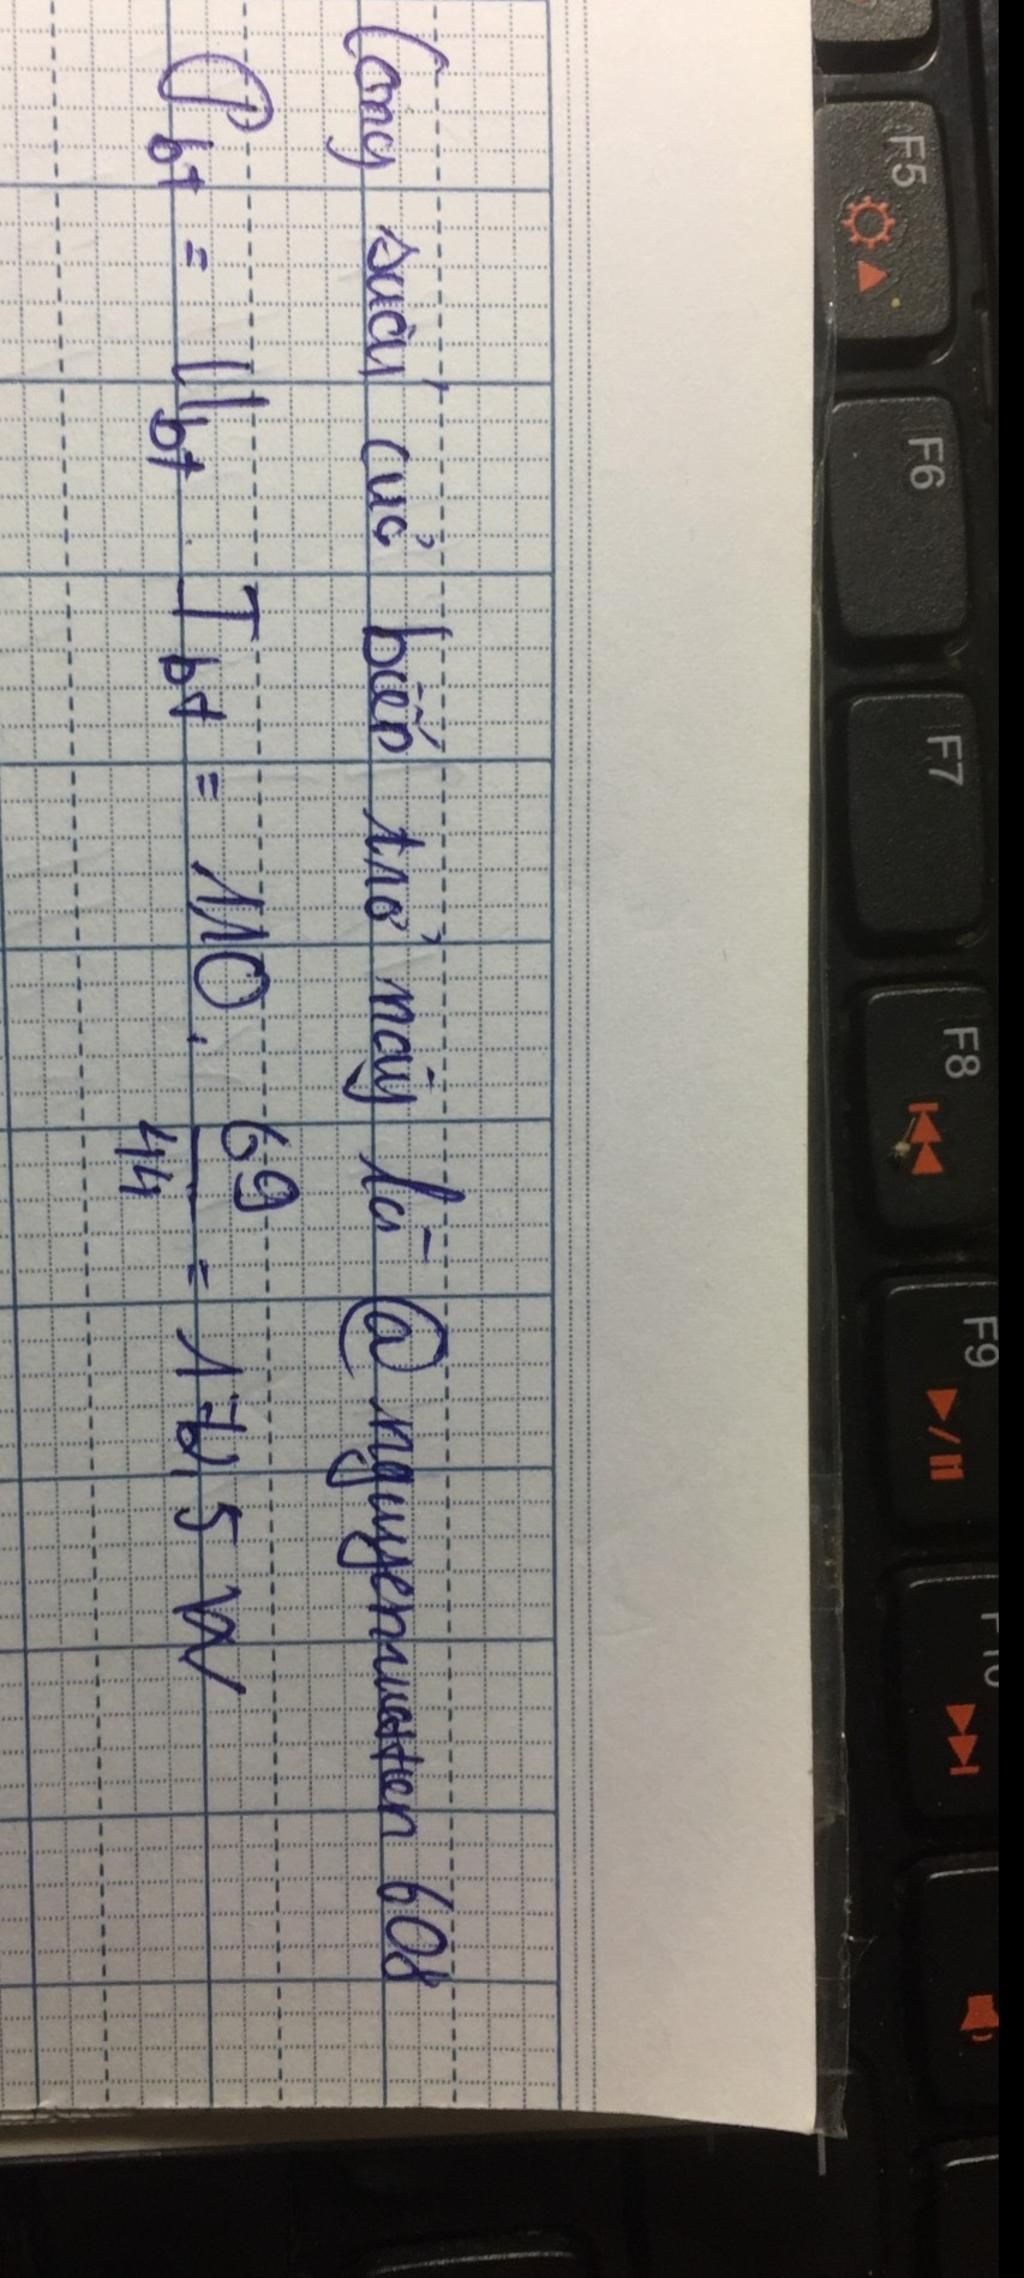 Công suất của biến trở này là @nguyenvueten608
P bt = U bt . I bt = 110 . 69/44 = 172,5 W
F5
F6
F7
F8
F9
F10